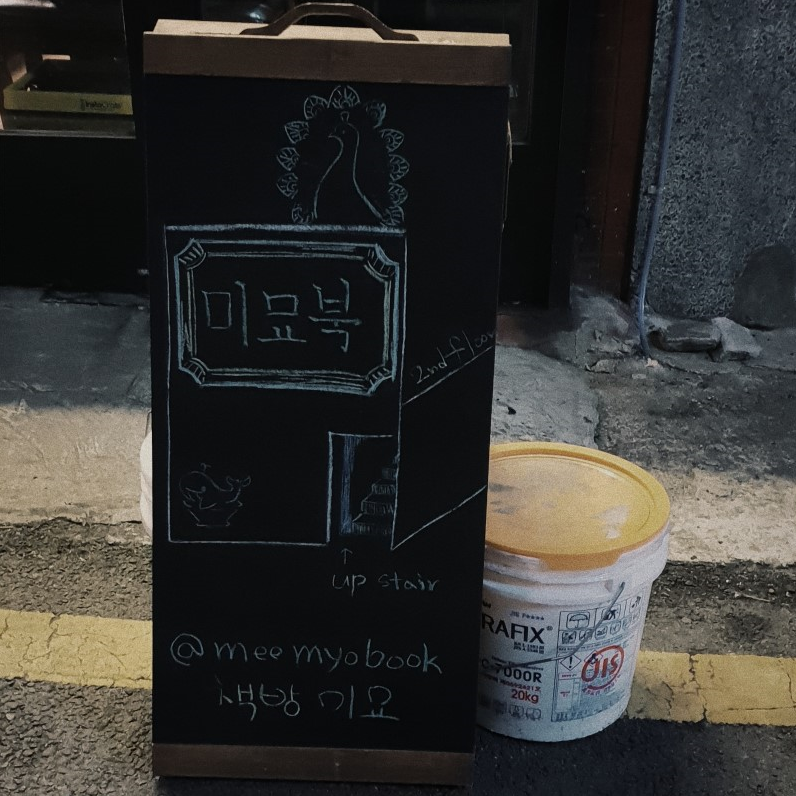 미묘북
2nd floor
up stair
@meemyobook
책방 미묘
RAFIX
7000R
20kg
JIS